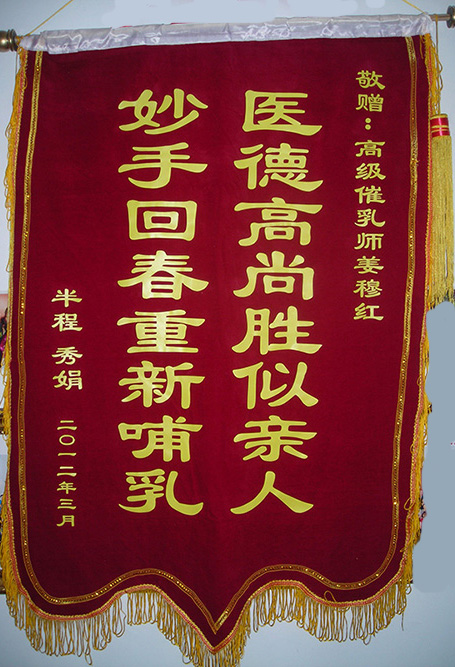 敬赠：高级催乳师姜穆红
医德高尚胜似亲人
妙手回春重新哺乳
半程 秀娟 二〇一二年三月